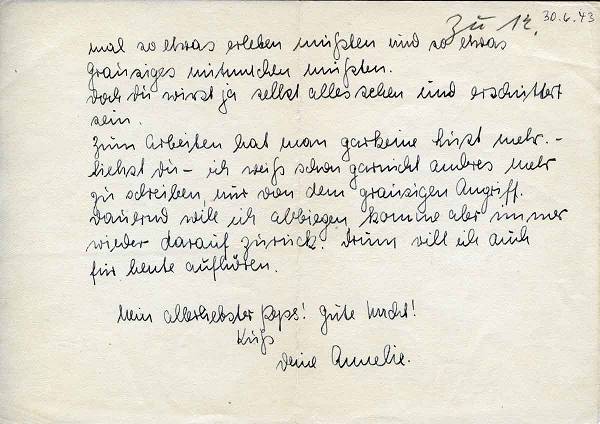 Zu 12. 30.6.43
mal so etwas erleben müßten und so etwas
grausiges mitmachen müßten.
Doch Du wirst ja selbst alles sehen und erschüttert
sein.
Zum Arbeiten hat man garkeine Lust mehr. -
Siehst Du - ich weiß schon garnicht anderes mehr
zu schreiben, nur von dem grausigen Angriff.
Dauernd will ich abbiegen komme aber immer
wieder darauf zurück. Drum will ich auch
für heute aufhören.
Mein allerliebster Peps! Gute Nacht!
Kuß
Deine Annelie.